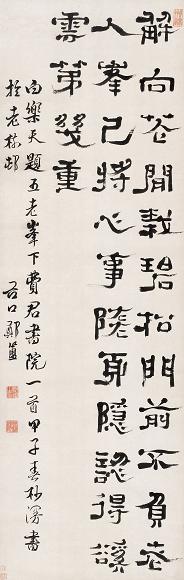 解向花閒栽碧松門前不負老
人峯已將心事隨身隱認得溪
雲第幾重
白樂天題五老峯下費君書院一首甲子春杪漫書
於老梅邨 谷口鄭簠